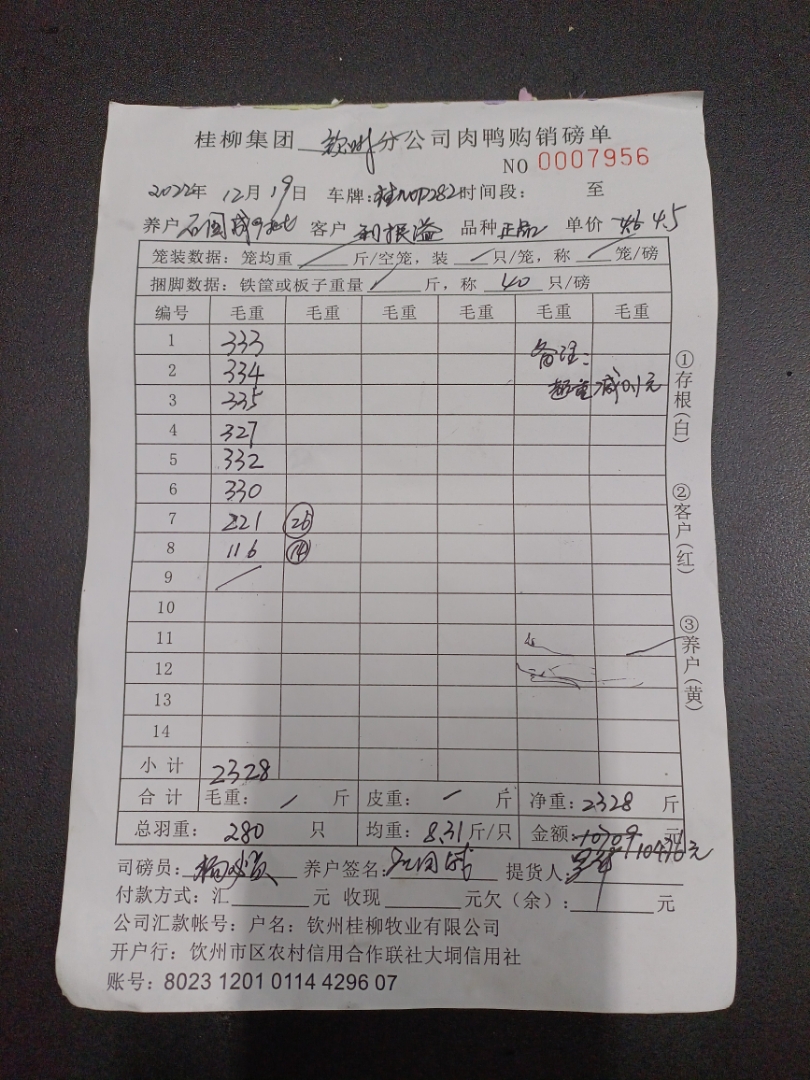 桂柳集团 钦州 分公司肉鸭购销磅单
NO 0007956
2022年 12月19日 车牌: 时间段: 至
养户 石国 客户 利振溢 品种 正品 单价 4.5
笼装数据：笼均重 / 斤/空笼，装 / 只/笼，称 / 笼/磅
捆脚数据：铁筐或板子重量 / 斤，称 40 只/磅
编号 毛重 毛重 毛重 毛重 毛重 毛重
1 333 备注：
2 334 超重减0.1元
3 335
4 327
5 332
6 330
7 221 26
8 116 14
9 /
10
11
12
13
14
小计 2328
合计 毛重: / 斤 皮重: / 斤 净重: 2328 斤
总羽重: 280 只 均重: 8.31 斤/只 金额: 10476元
司磅员: 养户签名: 提货人:
付款方式: 汇 元 收现 元欠（余）: 元
公司汇款帐号：户名：钦州桂柳牧业有限公司
开户行：钦州市区农村信用合作联社大垌信用社
账号：8023 1201 0114 4296 07
①存根(白)
②客户(红)
③养户(黄)